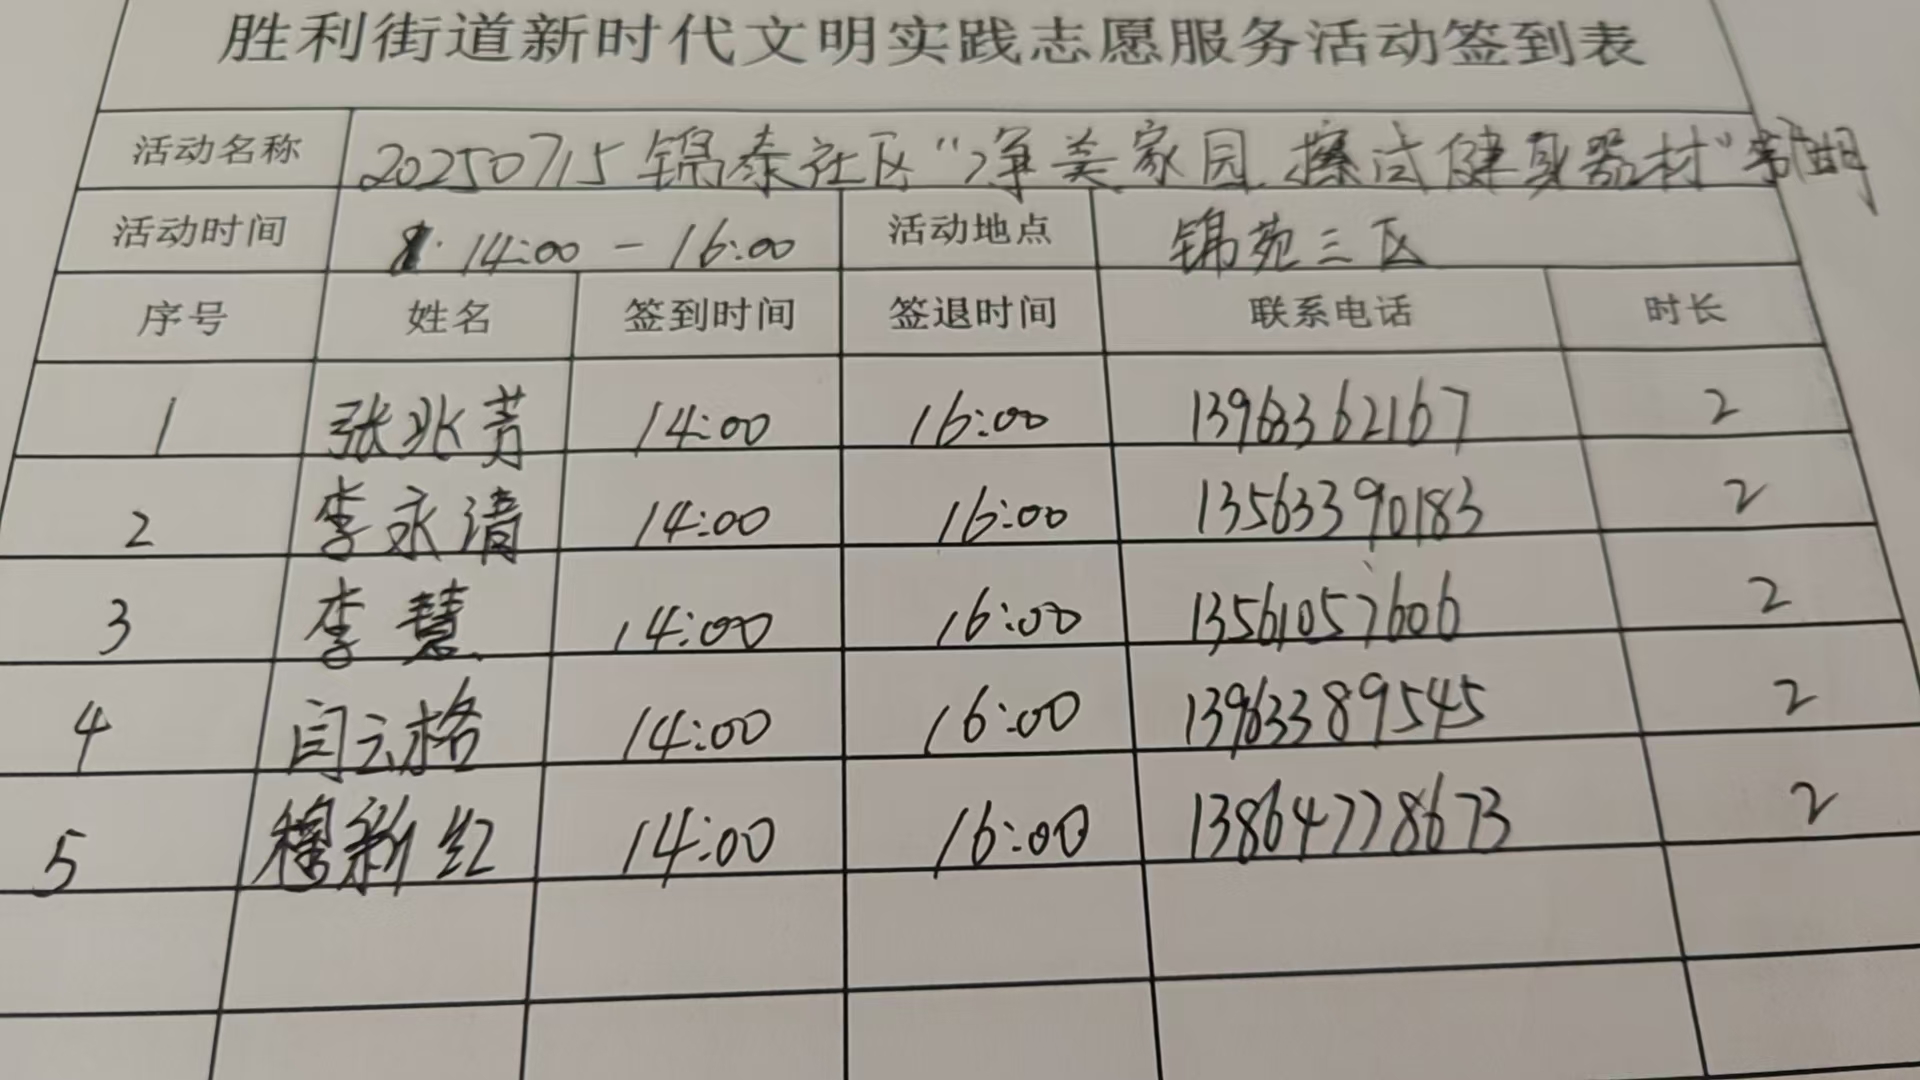 胜利街道新时代文明实践志愿服务活动签到表
活动名称 20250715锦泰社区“净美家园.擦拭健身器材”
活动时间 14:00-16:00 活动地点 锦苑三区
序号 姓名 签到时间 签退时间 联系电话 时长
1 张兆芳 14:00 16:00 13963362167 2
2 李永清 14:00 16:00 13563390183 2
3 李慧 14:00 16:00 13561057606 2
4 闫云格 14:00 16:00 13963389545 2
5 穆新红 14:00 16:00 13864778673 2